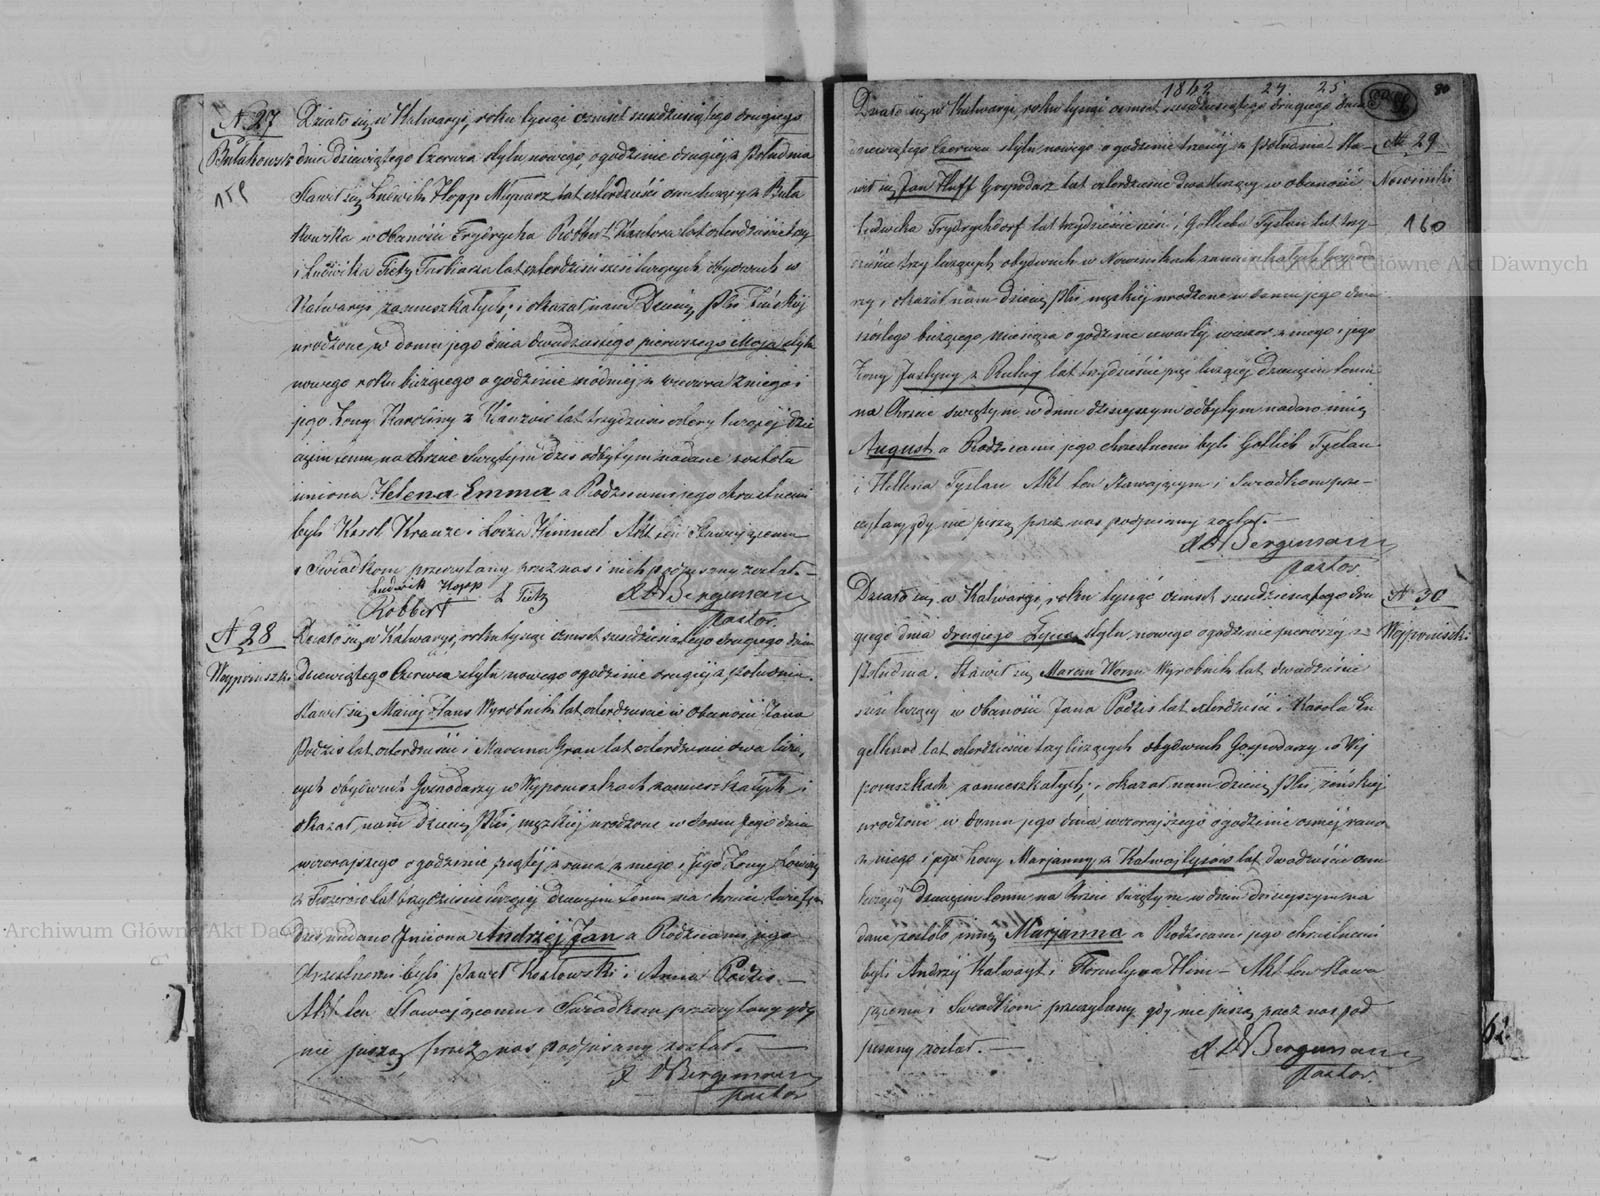 N. 27
Działo się w Kalwaryi, roku tysiąc ośmset sześćdziesiątego drugiego
dnia dziewiątego Czerwca stylu nowego, o godzinie drugiej z południa
159
Stawił się Ludwik Hopp Młynarz lat czterdzieści ośm liczący z Buła
kowska w obecności Frydrycha Robbert Kantora lat czterdzieści trzy
i Ludwika Tietz lat czterdzieści sześć liczących obydwuch w
Kalwaryi zamieszkałych, i okazał nam Dziecię płci żeńskiej
urodzone w domu jego dnia dwudziestego pierwszego Maja stylu
nowego roku bieżącego o godzinie siódmej z wieczora z niego i
jego żony Karoliny z lat trzydzieści cztery liczącej dzie
cięciu temu na chrzcie świętym dziś odbytym nadane zostały
imiona Helena Emma a Rodzicami jego chrzestnemi
byli Karol Krauze i Luiza Himmel Akt ten Stawającemu
i Świadkom przeczytany przez nas i nich podpisany został. —
Ludwik Hopp
Robbert L Tietz Bergmann
pastor.
N. 28
Działo się w Kalwaryi, roku tysiąc ośmset sześćdziesiątego drugiego dnia
Dziewiątego Czerwca stylu nowego o godzinie drugiej z południa.
Stawił się Maciej Hans Wyrobnik lat czterdzieści w obecności Jana
Podzis lat czterdzieści i Marcina Gran lat czterdzieści dwa liczą
cych obydwuch Gospodarzy w Wyponiszkach zamieszkałych i
okazał nam dziecię płci męzkiej urodzone w domu jego dnia
wczorajszego o godzinie piątej z rana z niego i jego żony Lowizy
z lat trzydzieści liczącej Dziecięciu temu na chrzcie świętym
dziś nadano Imiona Andrzej Jan a Rodzicami jego
chrzestnemi byli Paweł Kozłowski i Anna Podzis. —
Akt ten Stawającemu i Świadkom przeczytany gdy
nie piszą przez nas podpisany został. —
Bergmann
pastor
1862 24. 25 80
Działo się w Kalwaryi, roku tysiąc ośmset sześćdziesiątego drugiego dnia
dziewiątego Czerwca stylu nowego o godzinie trzeciej z południa Sta-
N. 29
wił się Jan Huff Gospodarz lat czterdzieści dwa liczący w obecności
Nowinki
Ludwika Frydrychdorf lat trzydzieści sześć i Gotlieba Tyslau lat trzy-
160
dzieści trzy liczących obydwuch w Nowinkach zamieszkałych Gospoda
rzy, i okazał nam dziecię płci męzkiej urodzone w domu jego dnia
szóstego bieżącego miesiąca o godzinie czwartej wieczor z niego i jego
żony Justyny z Ruling lat trzydzieści pięć liczącej Dziecięciu temu
na Chrzcie świętym w dniu dzisiejszym odbytym nadano imię
August a Rodzicami jego chrzestnemi byli Gotlieb Tyslau
i Hellena Tyslau Akt ten Stawającym i Świadkom prze-
czytany gdy nie piszą przez nas podpisany został. —
Bergmann
pastor.
N. 30
Działo się w Kalwaryi, roku tysiąc ośmset sześćdziesiątego dru
giego dnia drugiego Lipca stylu nowego o godzinie pierwszej z
południa. Stawił się Marcin Worm Wyrobnik lat dwadzieścia
sześć liczący w obecności Jana Podzis lat czterdzieści i Karola En
gelhard lat czterdzieści trzy liczących obydwuch Gospodarzy w Wy
poniszkach zamieszkałych, i okazał nam dziecię płci żeńskiej
urodzone w domu jego dnia wczorajszego o godzinie ósmej rano
z niego i jego żony Marjanny z Kalwajtysów lat dwadzieścia ośm
liczącej Dziecięciu temu na chrzcie świętym w dniu dzisiejszym na
dane zostało imię Marjanna a Rodzicami jego chrzestnemi
byli Andrzej Kalwajt i Florentyna Hin — Akt ten Stawa
jącemu i Świadkom przeczytany gdy nie piszą przez nas pod
pisany został. —
Bergmann
pastor.
62.
Archiwum Główne Akt Dawnych
Archiwum Główne Akt Dawnych